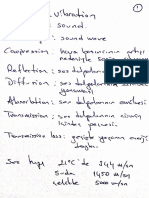 1
: vibration
: sound
: sound wave
Compression : hava basıncının artışı
nedeniyle
Reflection : ses dalgalarının
Diffusion : ses dalgalarının
yayınması
Absorbtion : ses dalgalarının emilmesi
Transmission : ses dalgalarının
Transmission loss : geçişte yaşanan enerji
Ses hızı 21°C de 344 m/sn
Suda 1450 m/sn
çelikte 5000 m/sn